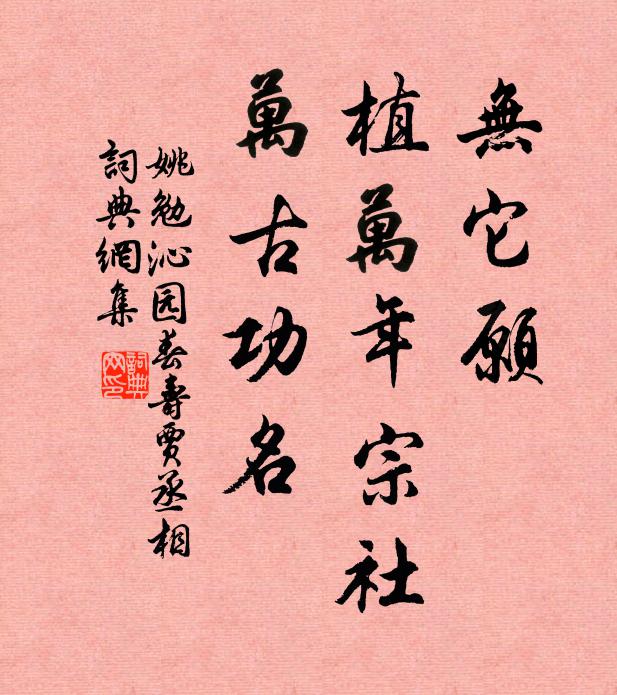 無它願
植萬年宗社
萬古功名
姚勉沁园春壽賈丞相
詞典網集
詞典網印